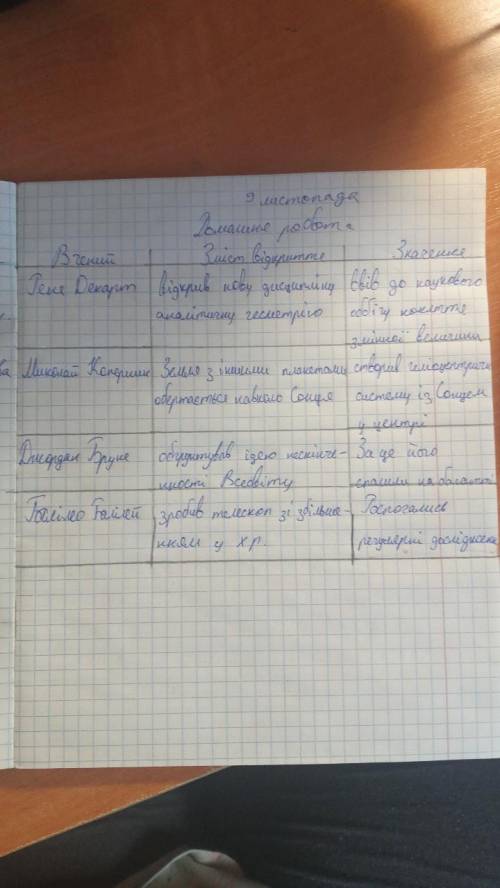 9 листопада
Домашня робота
Вчений Зміст відкриття Значення
Рене Декарт відкрив нову дисципліну ввів до наукового
аналітичну геометрію обігу поняття
змінної величини
Миколай Коперник Земля з іншими планетами створив геліоцентричну
обертається навколо Сонця систему із Сонцем
у центрі
Джордано Бруно обґрунтував ідею нескінче- За це його
нності Всесвіту спалили на багатті
Галілео Галілей зробив телескоп зі збільше- Розпочались
нням у хр. регулярні дослідження